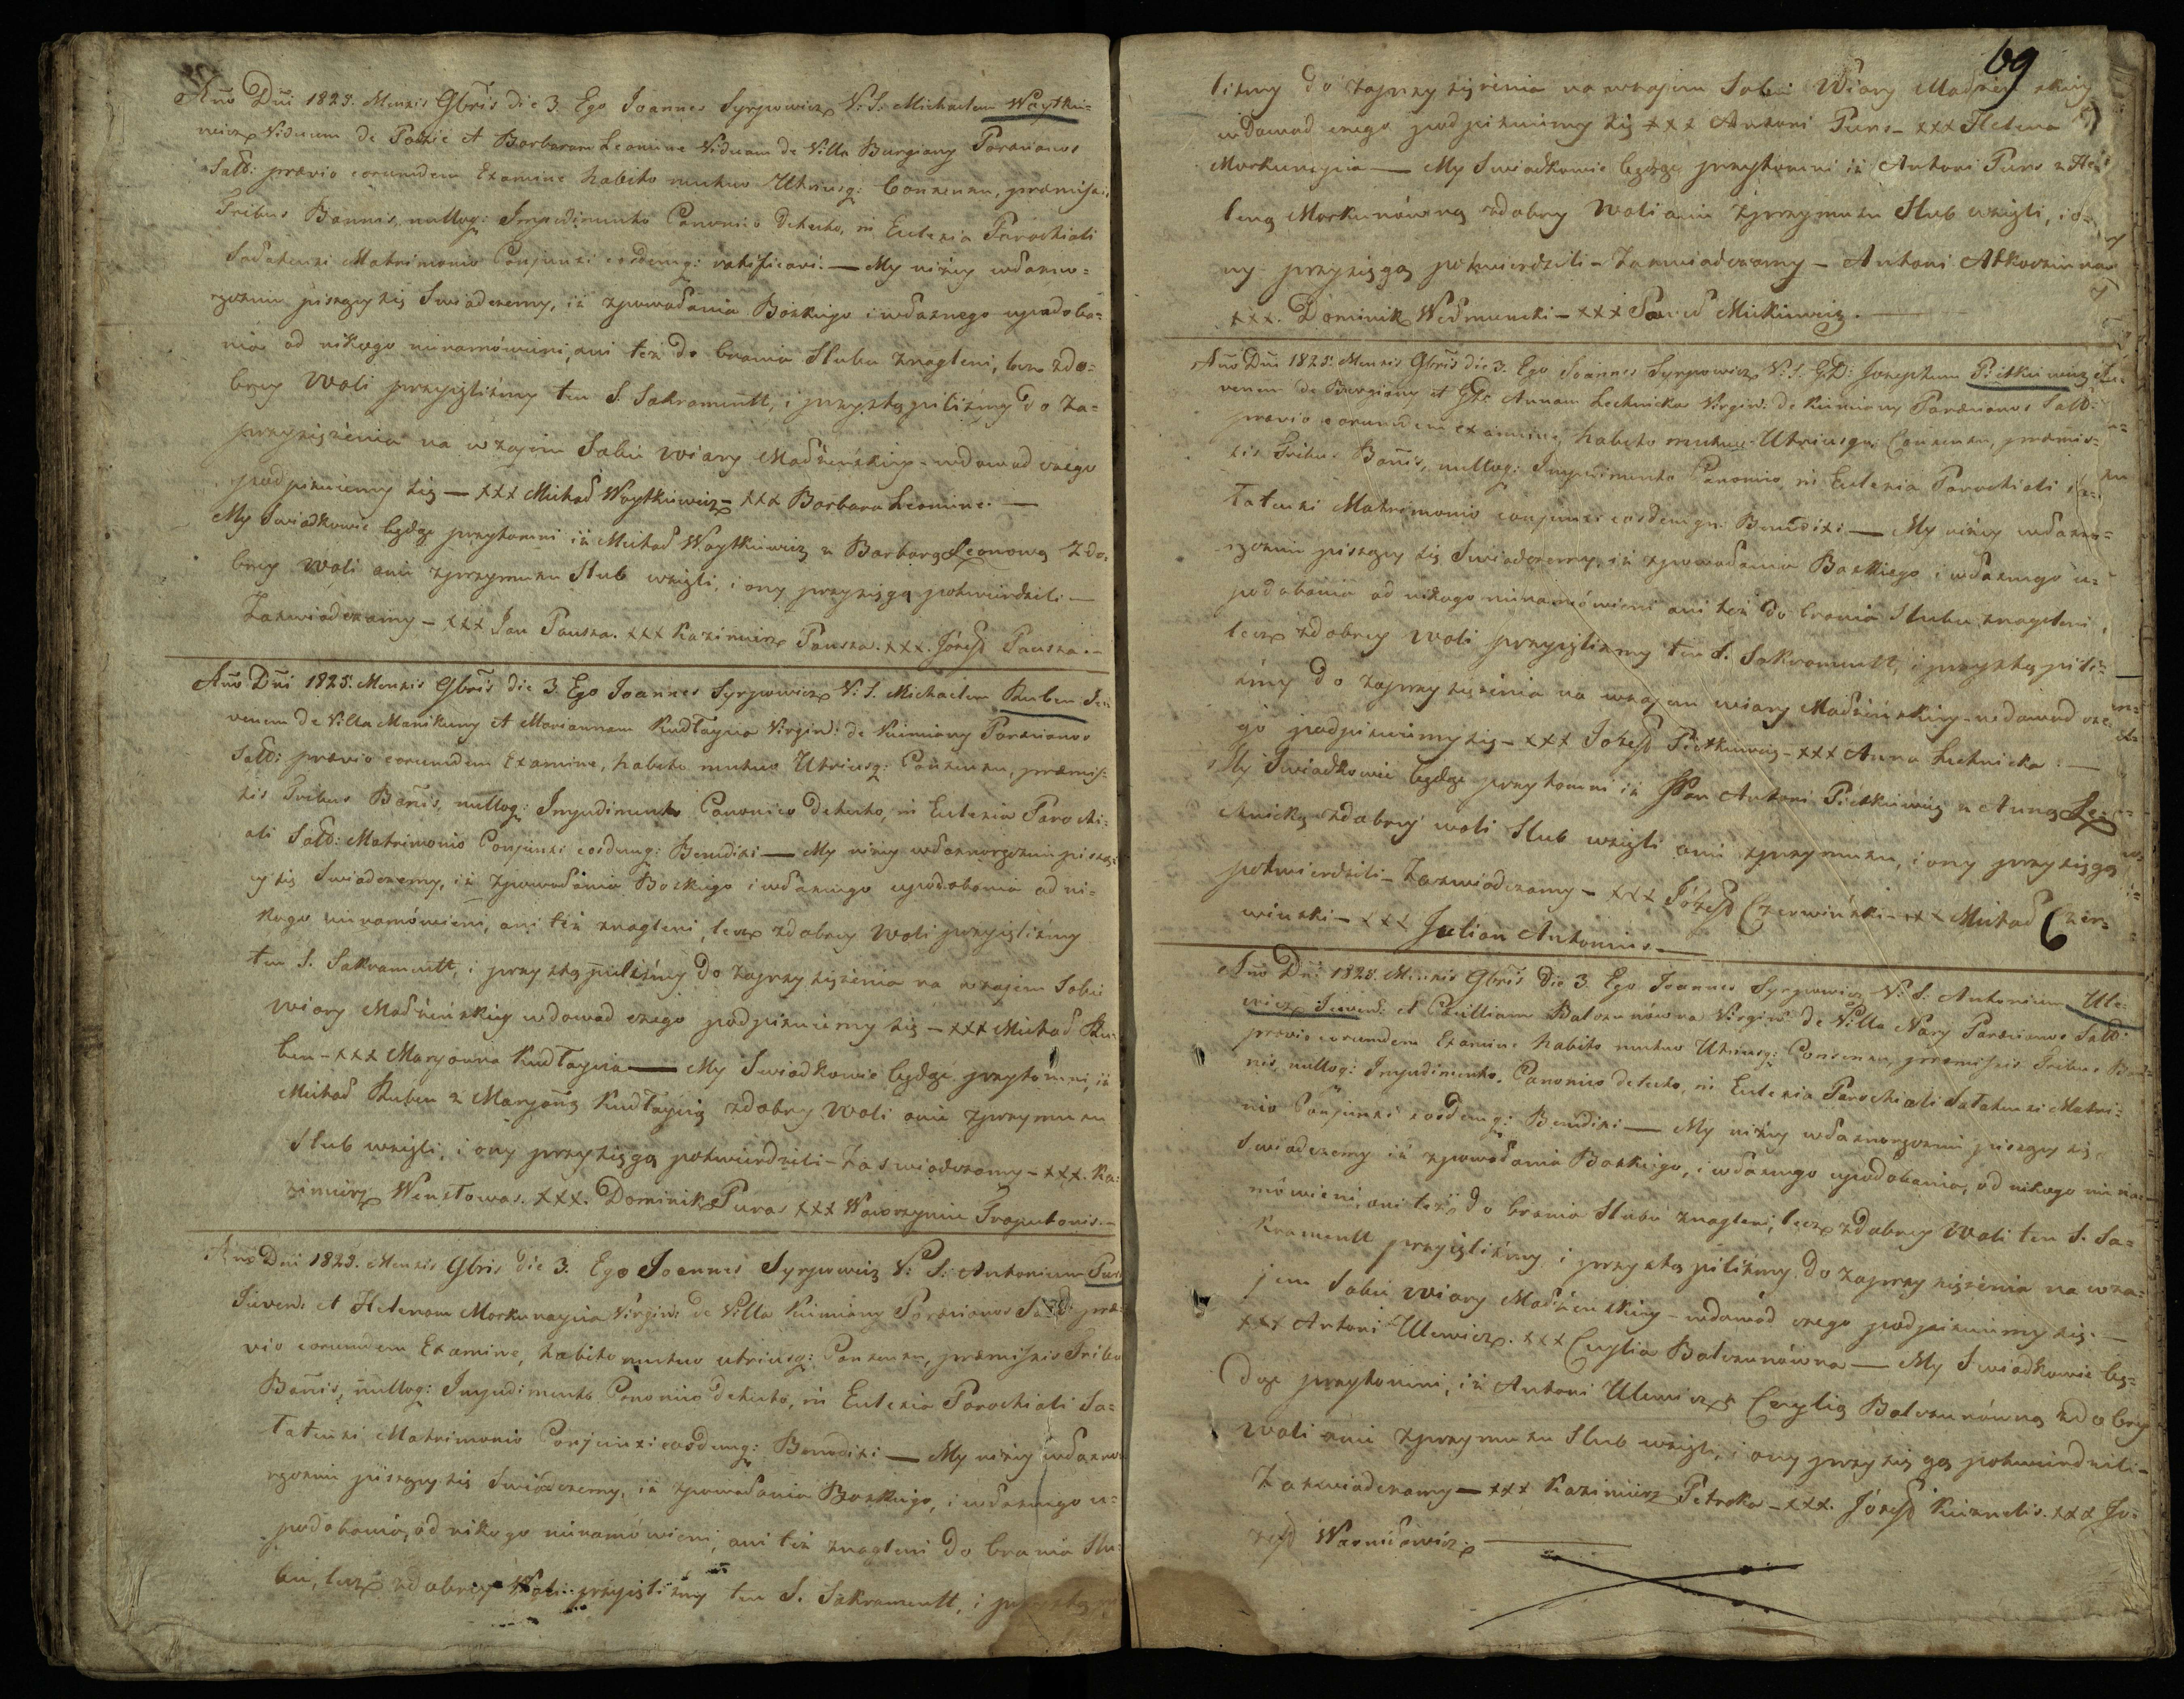 Año Dñi 1825. Mensis 9bris die 3. Ego Joannes Syrpowicz V: S: Michaelem Woytkie=
wicz Viduum de Poszie et Barbaram Leonine Viduam de Villa Burgiany Paræcianos
Sałd: prævio eorumdem Examine habito mutuo Utriusq: Consensu, præmissis
Tribus Bannis, nulloq: Impedimento Canonico detecto, in Eclesia Parochiali
Sałatensi Matrimonio Conjunxi eosdemq: ratificavi. — My niżey własno=
ręcznie piszący się Swiadczemy, iż zpowołania Bozkiego i własnego upodoba=
nia od nikogo nienamówieni, ani też do brania Slubu znagleni, lecz zdo=
brey Woli przyięliśmy ten S. Sakramentt, i przystąpiliśmy do za=
przysiężenia na wzajem Sobie wiary Małżeńskiey - wdowod czego
podpisuiemy się — xxx Michał Woytkiewicz - xxx Barbara Leonine. —
My Swiadkowie będąc przytomni iż Michał Woytkiewicz z Barbarą Leonową zdo=
brey Woli anie zprzymusu Slub wzięli, i ony przysięgą potwierdzili —
Zaswiadczamy - xxx Jan Pausza. xxx Kazimierz Pausza. xxx. Józeff Pausza. -
Año Dñi 1825. Mensis 9bris die 3. Ego Joannes Syrpowicz V: S. Michaelem Ruben Ju=
venem de Villa Manikuny et Mariannam Kudłaycia Virgin: de Kiemiany Paræcianos
Sałd: prævio eorumdem Examine, habito mutuo Utriusq: Consensu, præmis=
sis Tribus Bañis, nulloq: Impedimento Canonico detecto, in Eclesia Parochi=
ali Sałd: Matrimonio Conjunxi eosdemq: Benedixi — My niżey własnoręcznie piszą=
cy się Swiadczemy, iż zpowołania Bozkiego i własnego upodobania od ni=
kogo nienamówieni, ani też znagleni, lecz zdobrey Woli przyięliśmy
ten S. Sakramentt, i przystąpiliśmy do zaprzysiężenia na wzajem Sobie
wiary Małżeńskiey wdowod czego podpisuiemy się — xxx Michał Ru=
ben - xxx Maryanna Kudłaycia — My Swiadkowie będąc przytomni, iż
Michał Ruben z Maryañą Kudłaycią zdobrey Woli anie zprzymusu
Slub wzięli, i ony przysięgą potwierdzili - Zaswiadczamy - xxx. Ka=
zimierz Wensłowas. xxx. Dominik Puras xxx Wawrzyniec Trapukonis. -
Año Dñi 1825. Mensis 9bris die 3. Ego Joannes Syrpowicz V: S: Antonium Puns
Juven: et Helenam Morkunaycia Virgin: de Villa Kiemiany Paræcianos Sałd: præ=
vio eorumdem Examine, habito mutuo utriusq: Consensu, præmissis Tribus
Bañis, nulloq: Impedimento Canonico detecto, in Eclesia Parochiali Sa=
łatensi Matrimonio Conjunxi eosdemq: Benedixi — My niżey własno=
ręcznie piszący się Swiadczemy, iż zpowołania Bozkiego, i własnego u=
podobania, od nikogo nienamówieni, ani też znagleni do brania Slu=
bu, lecz zdobrey Woli przyięliśmy ten S. Sakramentt, i przystąpi
69
liśmy do zaprzysiężenia na wzajem Sobie Wiary Małżeńskiey
wdowod czego podpisuiemy się xxx Antoni Puns - xxx Helena
Morkunaycia — My Swiadkowie będąc przytomni iż Antoni Puns z He=
leną Morkunówną zdobrey Woli anie zprzymusu Slub wzięli, i o=
ny przysięgą potwierdzili - Zaswiadczamy - Antoni Atkoczunas
xxx. Dominik Wedmuncki - xxx Paweł Mickiewicz. —
Año Dñi 1825. Mensis 9bris die 3. Ego Joannes Syrpowicz V: S. GD: Josephum Pietkiewicz Ju=
venem de Burgiany et GD: Annam Lechnicka Virgin: de Kiemiany Paræcianos Sałd:
prævio eorumdem examine, habito mutuo Utriusque Consensu, præmis=
sis Tribus Bañis, nulloq: Impedimento Canonico, in Eclesia Parochiali Sa=
łatensi Matrimonio conjunxi eosdemque Benedixi — My niżey własno=
ręcznie piszący się Swiadczemy, iż zpowołania Bozkiego i własnego u=
podobania od nikogo nienamówieni ani też do brania Slubu znagleni,
lecz zdobrey Woli przyięliśmy ten S. Sakramentt, i przystąpili=
śmy do zaprzysiężenia na wzajem wiary Małżeńskiey - wdowod cze=
go podpisuiemy się - xxx Jozeff Pietkiewicz - xxx Anna Lechnicka. —
My Swiadkowie będąc przytomni iż JPan Antoni Pietkiewicz z Anną Le=
chnicką zdobrey woli Slub wzięli anie zprzymusu, i ony przysięgą
potwierdzili - Zaswiadczamy - xxx Józeff Czerwiński - xxx Michał Czer=
wiński - xxx Julian Antonius. —
Año Dñi 1825. Mensis 9bris die 3. Ego Joannes Syrpowicz V: S: Antonium Ule=
wicz Juven: et Cæcilliam Balczunówna Virgin: de Villa Nary Paræcianos Sałd:
prævio eorumdem Examine habito mutuo Utriusq: Consensu, præmissis Tribus Ban=
nis, nulloq: Impedimento Canonico detecto, in Eclesia Parochiali Sałatensi Matri=
nio Conjunxi eosdemq: Benedixi — My niżey własnoręcznie piszący się
Swiadczemy iż zpowołania Bozkiego, i własnego upodobania, od nikogo niena=
mówieni, ani też do brania Slubu znagleni, lecz zdobrey Woli ten S. Sa=
kramentt przyięliśmy i przystąpiliśmy do zaprzysiężenia na wza=
jem Sobie wiary Małżeńskiey - wdowód czego podpisuiemy się. —
xxx Antoni Ulewicz. xxx Cecylia Balczunówna — My Swiadkowie bę=
dąc przytomni, iż Antoni Ulewicz z Cecylią Balczunówną zdobrey
woli anie zprzymusu Slub wzięli, i ony przysięgą potwierdzili -
Zaswiadczamy — xxx Kazimierz Petroka - xxx. Józeff Kisznelis. xxx Jó=
zeff Wasnilewicz. —